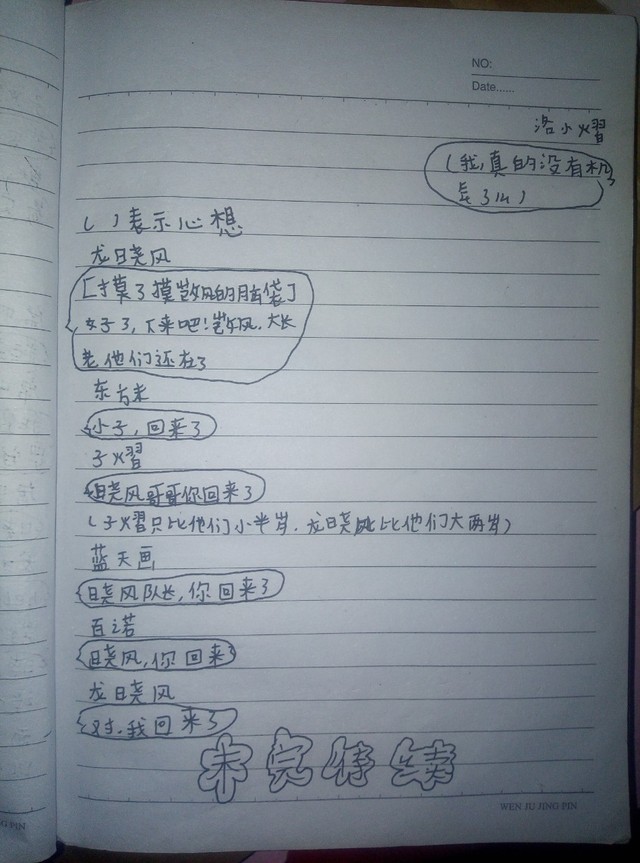 NO:
Date......
洛小熠
(我,真的没有机
会了吗)
( )表示心想
龙日晓风
[摸了摸凯风的脑袋]
好了,下来吧!凯风.大长
老他们还在了
东方末
小子,回来了
子熠
晓风哥哥你回来了
(子熠只比他们小半岁.龙日晓风比他们大两岁)
蓝天画
日晓风队长,你回来了
百诺
日晓风,你回来了
龙日晓风
对.我回来了
未完待续
WEN JU JING PIN
G PIN